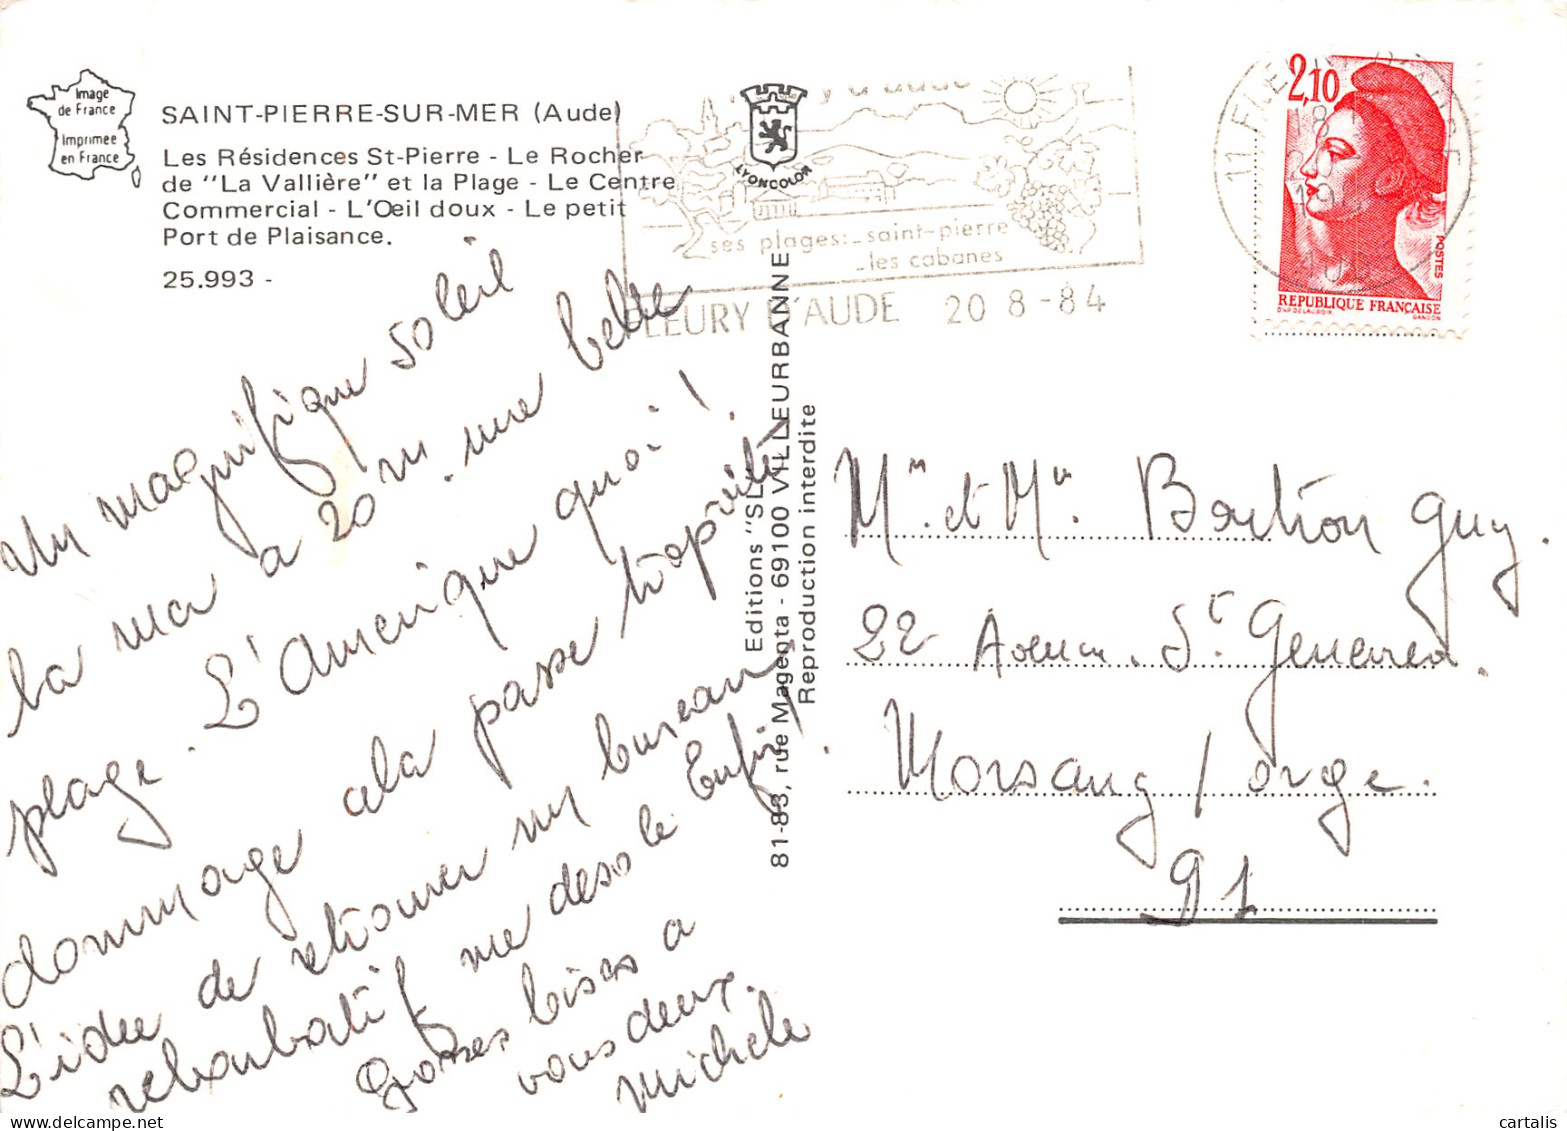 Image
de France
Imprimée
en France
SAINT-PIERRE-SUR-MER (Aude)
Les Résidences St-Pierre - Le Rocher
de "La Vallière" et la Plage - Le Centre
Commercial - L'Œil doux - Le petit
Port de Plaisance.
25.993 -
LYONCOLOR
y d'aude
ses plages: saint-pierre
les cabanes
FLEURY D'AUDE 20 8 - 84
2,10
POSTES
REPUBLIQUE FRANÇAISE
D'AP. DELACROIX GANDON
Editions "SL"
81-83, rue Magenta - 69100 VILLEURBANNE
Reproduction interdite
Un magnifique soleil
la mer a 20 m. une belle
plage. L'Amerique quoi !
dommage cela passe trop vite
L'idee de retrouver un bureau
rebarbatif me desole Enfin.
Grosses bises a
vous deux.
Michele
Mm et Mr. Guy.
22 Avenue St. Genevieve.
Morsang / orge.
91
cartalis